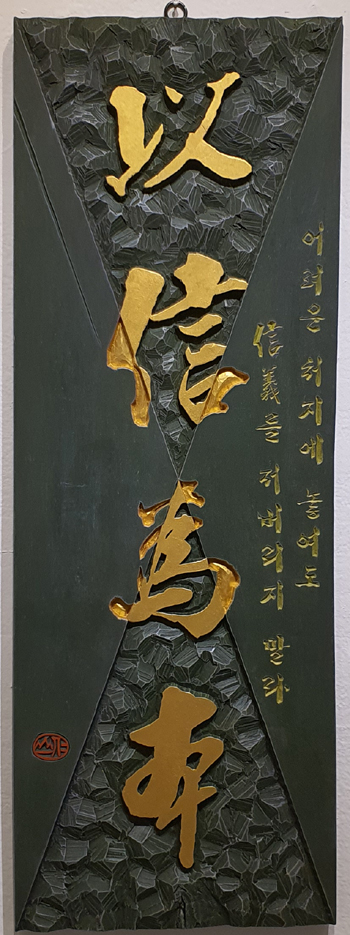 以信為本
어려운 처지에 놓여도
信義를 저버리지 말라